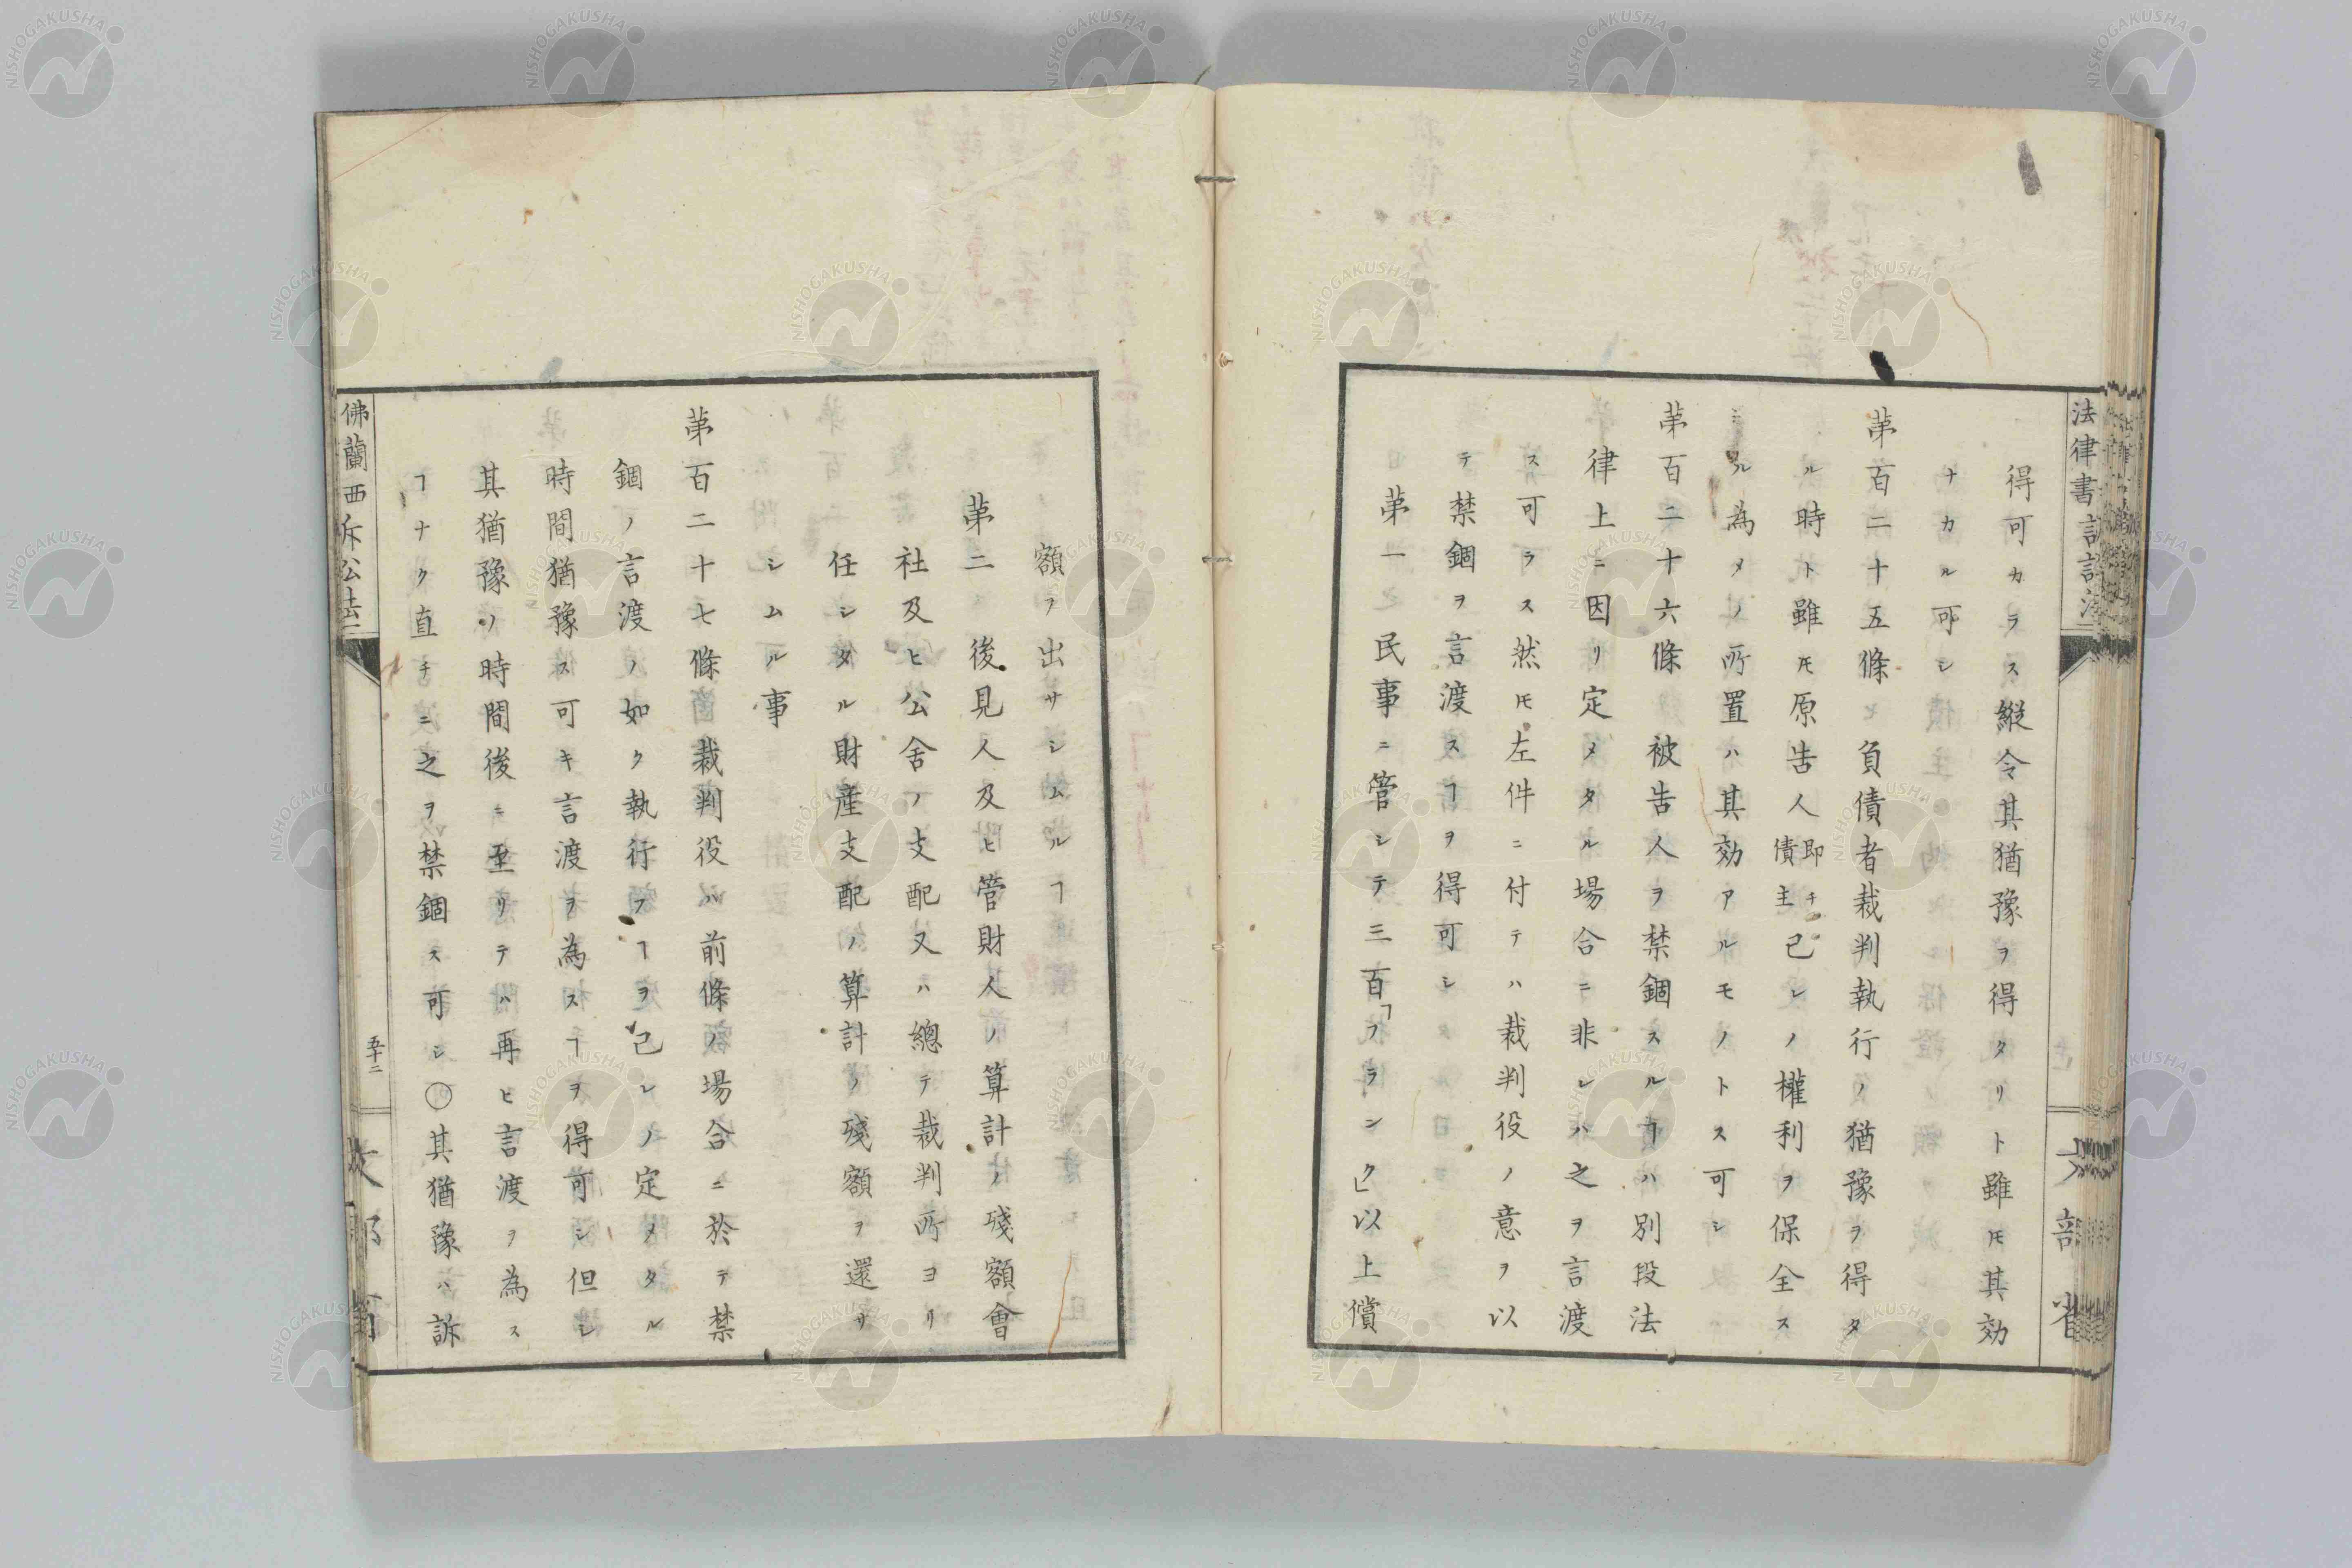 得可カラス縦令其猶豫ヲ得タリト雖𪜈其効
ナカル可シ
苐百二十五條 負債者裁判執行ノ猶豫ヲ得タ
ル時ト雖𪜈原告人即チ債主己レノ權利ヲ保全ス
ル為メノ所置ハ其効アルモノトス可シ
苐百二十六條 被告人ヲ禁錮スルヿハ別段法
律上ニ因リ定メタル場合ニ非レハ之ヲ言渡
ス可ラス然𪜈左件ニ付テハ裁判役ノ意ヲ以
テ禁錮ヲ言渡スヿヲ得可シ
苐一 民事ニ管シテ三百「フランク」以上償
額ヲ出サシムルヿ
苐二 後見人及ヒ管財人ノ算計ノ殘額會
社及ヒ公舎ノ支配又ハ總テ裁判所ヨリ
任シタル財産支配ノ算計ノ殘額ヲ還サ
シムル事
苐百二十七條 裁判役ハ前條ノ場合ニ於テ禁
錮ノ言渡ノ如ク執行フヿヲ己レノ定メタル
時間猶豫ス可キ言渡ヲ為スヿヲ得可シ但シ
其猶豫ノ時間後ニ至リテハ再ヒ言渡ヲ為ス
ヿナク直チニ之ヲ禁錮ス可シ○其猶豫ハ訴
佛蘭西訴訟法
五十二
文部省
NISHOGAKUSHA